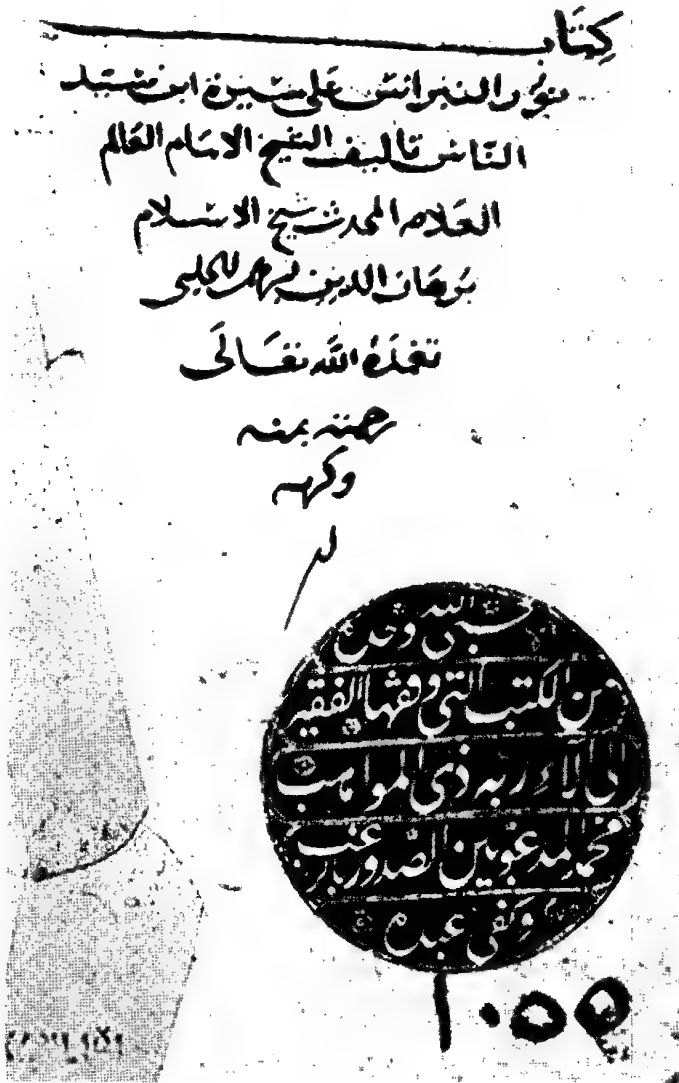 كِتَاب
نور النبراس على سيرة ابن سيد
الناس تاليف الشيخ الامام العالم
العلامه المحدث شيخ الاسلام
برهان الدين الحلبي
تغمدَهُ الله تعَالَى
رحمته بمنه
وكرمه
حسبي الله وحده
من الكتب التي وقفها الفقير
الى آلاء ربه ذي المواهب
محمد المدعو بين الصدور براغب
وكفى عبده
١٠٥٥